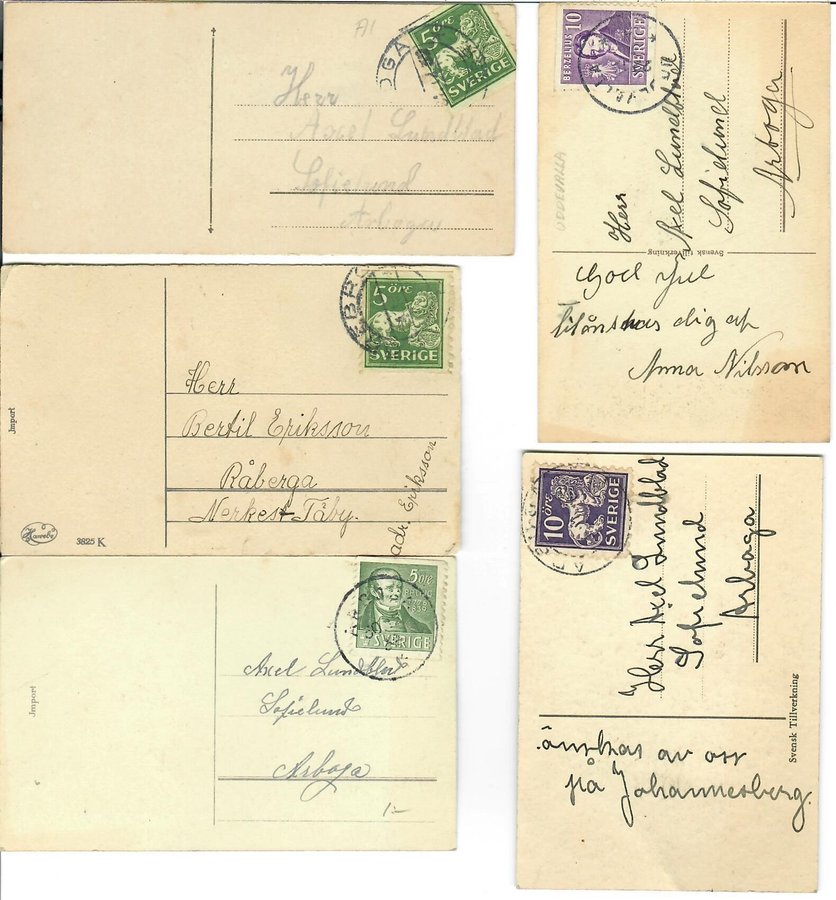 A1
5 ÖRE
SVERIGE
Herr
Axel Lundblad
Sofielund
Arboga
BERZELIUS 10
SVERIGE
UDDEVALLA
Herr
Axel Lundblad
Sofielund
Arboga
Svensk Tillverkning
God Jul
tillönskas dig af
Anna Nilsson
5 ÖRE
SVERIGE
Herr
Bertil Eriksson
Råberga
Nerkes-Täby.
adr. Eriksson
Import
3825 K
5 ÖRE
SVERIGE
Axel Lundblad
Sofielund
Arboga
Import
1:-
10 ÖRE
SVERIGE
Herr Axel Lundblad
Sofielund
Arboga
Svensk Tillverkning
önskas av oss
på Johannesberg.